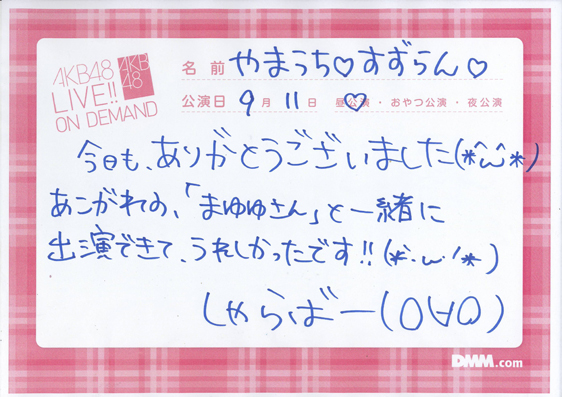 AKB48
LIVE!!
ON DEMAND
AKB
48
名前 やまうち♡すずらん♡
公演日 9月11日 昼公演・おやつ公演・夜公演
今日も、ありがとうございました(*^ω^*)
あこがれの、「まゆゆさん」と一緒に
出演できて、うれしかったです!!(*`・ω・´*)
しゃらばー(〇∀〇)
DMM.com